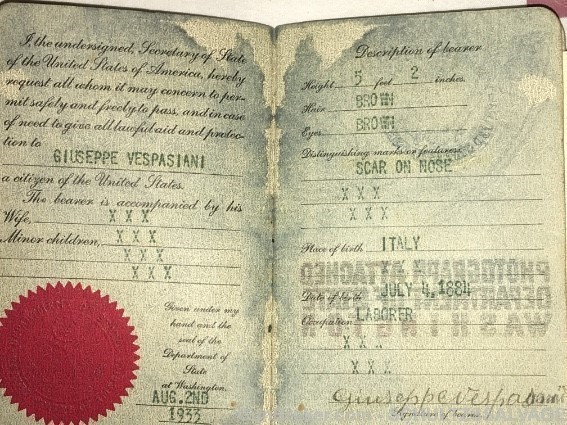 I, the undersigned, Secretary of State
of the United States of America, hereby
request all whom it may concern to per-
mit safely and freely to pass, and in case
of need to give all lawful aid and protec-
tion to
GIUSEPPE VESPASIANI
a citizen of the United States.
The bearer is accompanied by his
Wife, X X X
Minor children, X X X
X X X
X X X
Given under my
hand and the
seal of the
Department of
State
at Washington.
AUG. 2ND
1933
Description of bearer
Height 5 feet 2 inches.
Hair BROWN
Eyes BROWN
Distinguishing marks or features:
SCAR ON NOSE
X X X
X X X
Place of birth ITALY
PHOTOGRAPH ATTACHED
DEPARTMENT
WASHINGTON
Date of birth JULY 4, 1884
Occupation LABORER
X X X
X X X
Giuseppe Vespasiani
Signature of bearer.